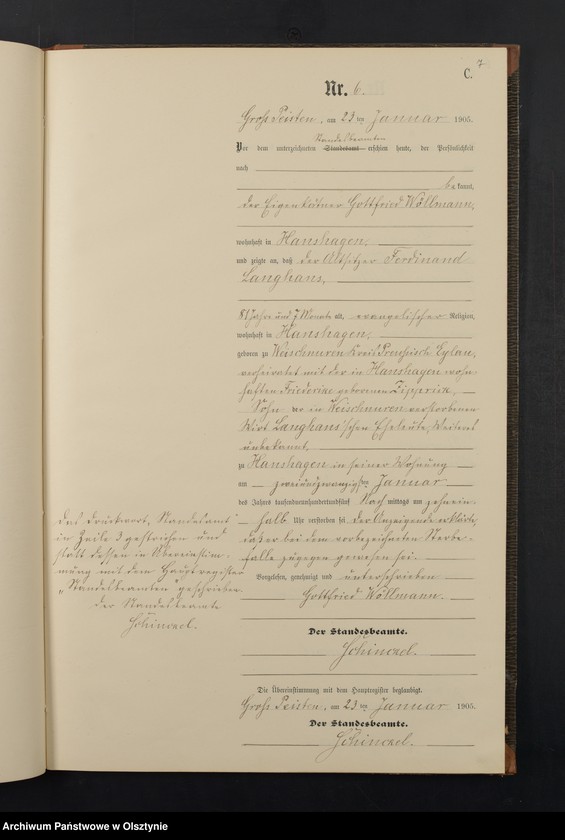 7
C.
Nr. 6.
Groß Peisten, am 23ten Januar 1905.
Standesbeamten
Vor dem unterzeichneten Standesamt erschien heute, der Persönlichkeit
nach
bekannt,
der Eigenkätner Gottfried Wöllmann,
wohnhaft in Hanshagen,
und zeigte an, daß der Altsitzer Ferdinand
Langhans,
81 Jahre und 7 Monate alt, evangelischer Religion,
wohnhaft in Hanshagen,
geboren zu Weischnuren Kreis Preußisch Eylau,
verheiratet mit der in Hanshagen wohn-
haften Friederike geborenen
Sohn der in Weischnuren verstorbenen
Wirt Langhans'schen Eheleute, Weiteres
unbekannt,
zu Hanshagen in seiner Wohnung
am zweiundzwanzigsten Januar
des Jahres tausendneunhundertfünf Nachmittags um zehnein-
halb Uhr verstorben sei, der Anzeigende erklärte,
daß er bei dem vorbezeichneten Sterbe-
falle zugegen gewesen sei.
Vorgelesen, genehmigt und unterschrieben
Gottfried Wöllmann.
Der Standesbeamte.
Schinckel.
Das Druckwort "Standesamt"
in Zeile 3 gestrichen und
statt dessen in Übereinstim-
mung mit dem Hauptregister
"Standesbeamten" geschrieben.
Der Standesbeamte
Schinckel.
Die Übereinstimmung mit dem Hauptregister beglaubigt.
Groß Peisten, am 23ten Januar 1905.
Der Standesbeamte.
Schinckel.
Archiwum Państwowe w Olsztynie